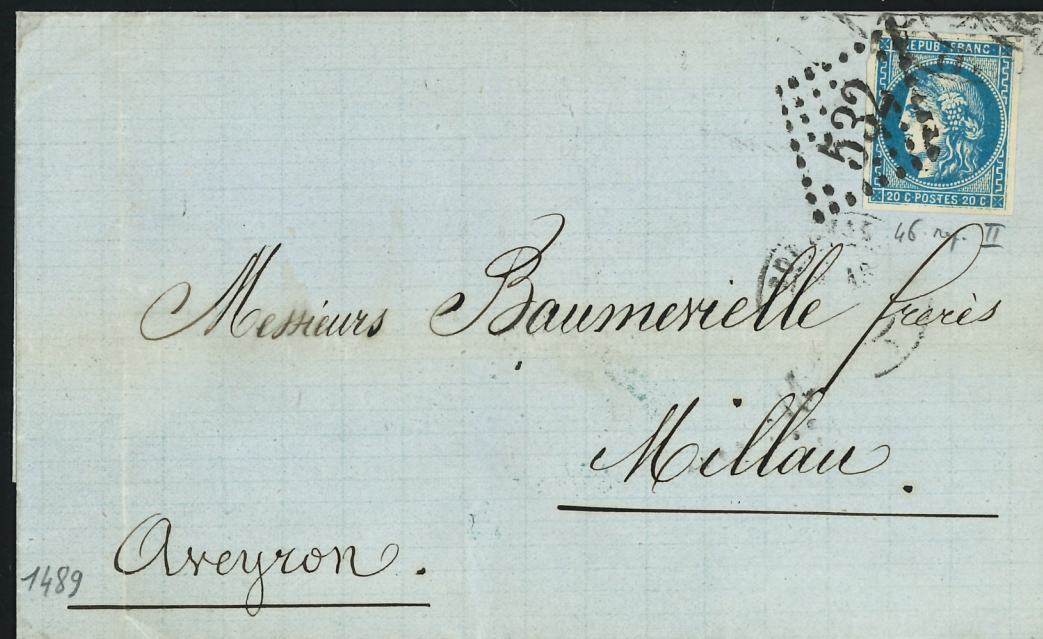 REPUB·FRANC·
532
20 C·POSTES 20 C
46 rep. II
Messieurs Baumevielle frerès
Millau.
Aveyron.
1489